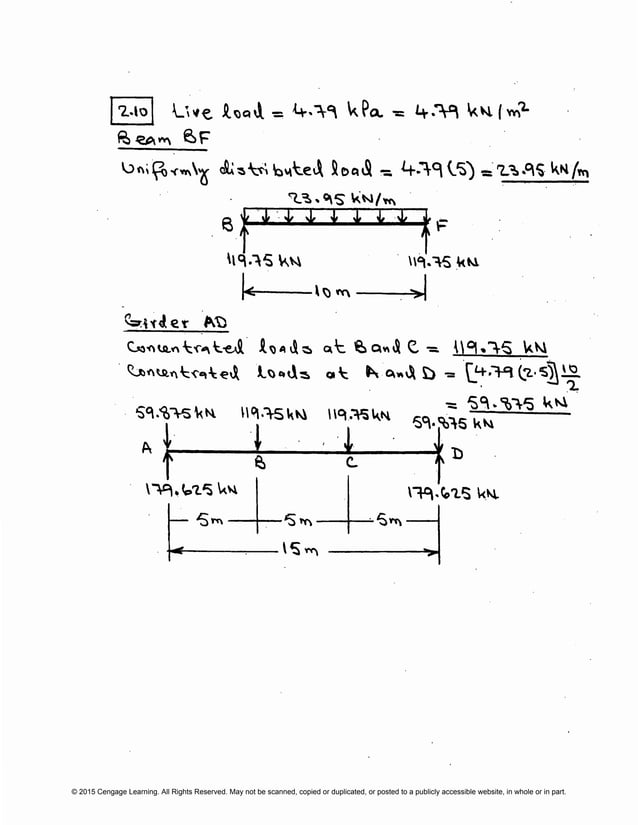 2.10 Live load = 4.79 kPa = 4.79 kN/m²
Beam BF
Uniformly distributed load = 4.79(5) = 23.95 kN/m
23.95 kN/m
B F
119.75 kN 119.75 kN
10m
Girder AD
Concentrated loads at B and C = 119.75 kN
Concentrated loads at A and D = [4.79(2.5)] 10/2
= 59.875 kN
59.875 kN 119.75 kN 119.75 kN 59.875 kN
A B C D
179.625 kN 179.625 kN
5m 5m 5m
15m
© 2015 Cengage Learning. All Rights Reserved. May not be scanned, copied or duplicated, or posted to a publicly accessible website, in whole or in part.